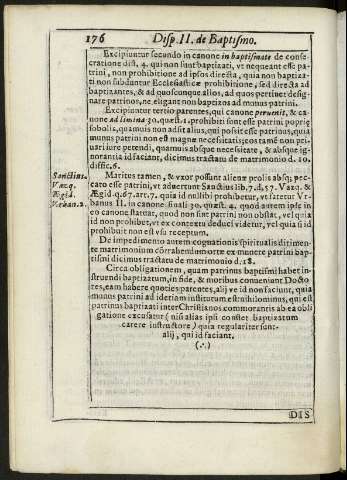 176 Disp. II. de Baptismo.
Excipiuntur secundo in canone in baptismate de conse
cratione dist. 4. qui non sunt baptizati, vt nequeant esse pa
trini, non prohibitione ad ipsos directa, quia non baptiza
ti non subduntur Ecclesiasticæ prohibitione, sed directa ad
baptizantes, & ad quoscunque alios, ad quos pertinet desig-
nare patrinos, ne eligant non baptizos ad munus patrini.
Excipiuntur tertio parentes, qui canone peruenit, & ca
none ad limina 30. quæst. 1. prohibiti sunt esse patrini propriæ
sobolis, quamuis non adsit alius, qui possit esse patrinus, quia
munus patrini non est magnæ necessitatis; eos tamē non pri-
uari iure petendi, quamuis absque necessitate, & absque ig-
norantia id faciant, dicimus tractatu de matrimonio d. 10.
diffic. 6.
Sanctius.
Vazq.
Ægid.
Vrban. 2.
Maritus tamen, & vxor possunt alienæ prolis absq; pec-
cato esse patrini, vt aduertunt Sanctius lib. 7. d. 57. Vazq. &
Ægid. q. 67. art. 7. quia id nullibi prohibetur, vt fatetur Vr-
banus II. in canone si quis 30. quæst. 4. quod autem ipse in
eo canone statuat, quod non sint patrini non obstat, vel quia
id non prohibet, vt ex contextu deduci videtur, vel quia si id
prohibuit non est vsu receptum.
De impedimento autem cognationis spiritualis dirimen-
te matrimonium cōtrahendum orte ex munere patrini bap-
tismi dicimus tractatu de matrimonio d. 18.
Circa obligationem, quam patrinus baptismi habet in-
struendi baptizatum, in fide, & moribus conueniunt Docto
res, eam habere quoties parentes, alij ve id non faciunt, quia
munus patrini ad id etiam institutum est nihilominus, qui est
patrinus baptizati inter Christianos commorantis ab ea obli
gatione excusatur (nisi alias ipsi constet baptizatum
carere instructore) quia regulariter sunt
alij, qui id faciant.
(∴)
DIS